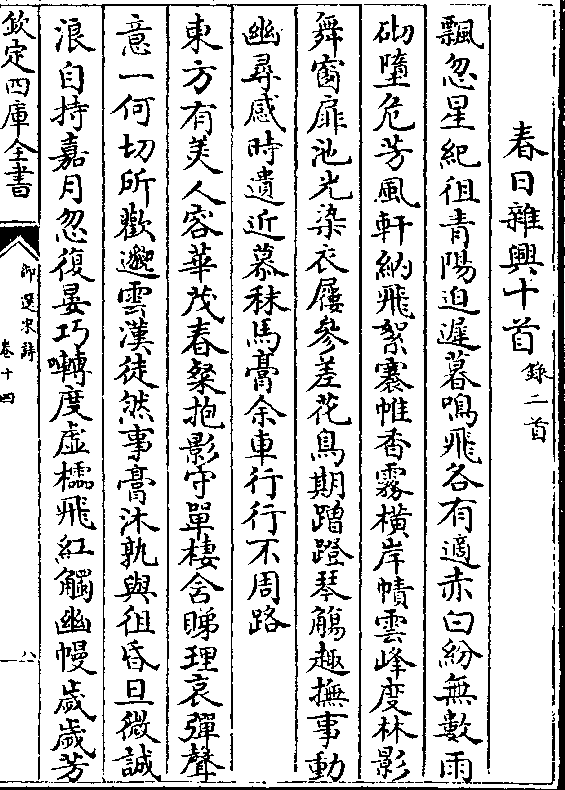 春日雜興十首錄二首
飄忽星紀徂青陽迫遲暮鳴飛各有適赤白紛無數雨
砌墮危芳風軒納飛絮褰帷香霧橫岸幘雲峰度林影
舞窗扉池光染衣屨參差花鳥期蹭蹬琴觴趣撫事動
幽尋感時遺近慕秣馬膏余車行行不周路
東方有美人容華茂春粲抱影守單棲含睇理哀彈聲
意一何切所歡邈雲漢徒然事膏沐孰與徂昏旦微誠
浪自持嘉月忽復晏巧囀度虛櫺飛紅觸幽幔歲歲芳
欽定四庫全書
御選宋詩
卷十四
八